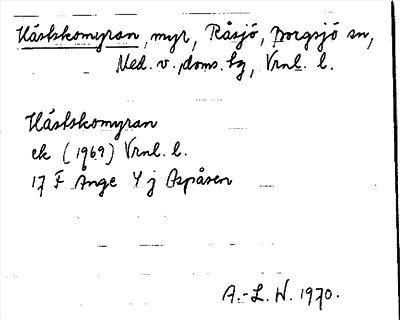 Hästskomyran, myr, Råsjö, Borgsjö sn,
Med. v. doms. hg, Vrnl. l.
Hästskomyran
ek (1969) Vrnl. l.
17 F Ånge 4 j Aspåsen
A.-L. W. 1970.